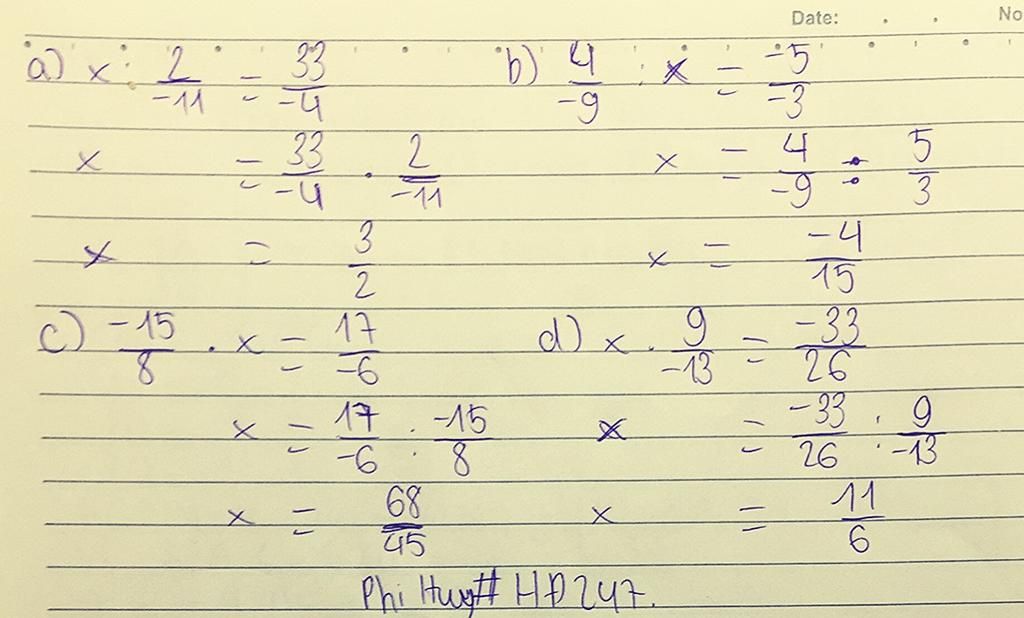 Date: . . No
a) x : 2/-11 = 33/-4
x = 33/-4 . 2/-11
x = 3/2
b) 4/-9 : x = -5/-3
x = 4/-9 : 5/3
x = -4/15
c) -15/8 . x = 17/-6
x = 17/-6 : -15/8
x = 68/45
d) x . 9/-13 = -33/26
x = -33/26 : 9/-13
x = 11/6
Phi Huy# HĐ247.